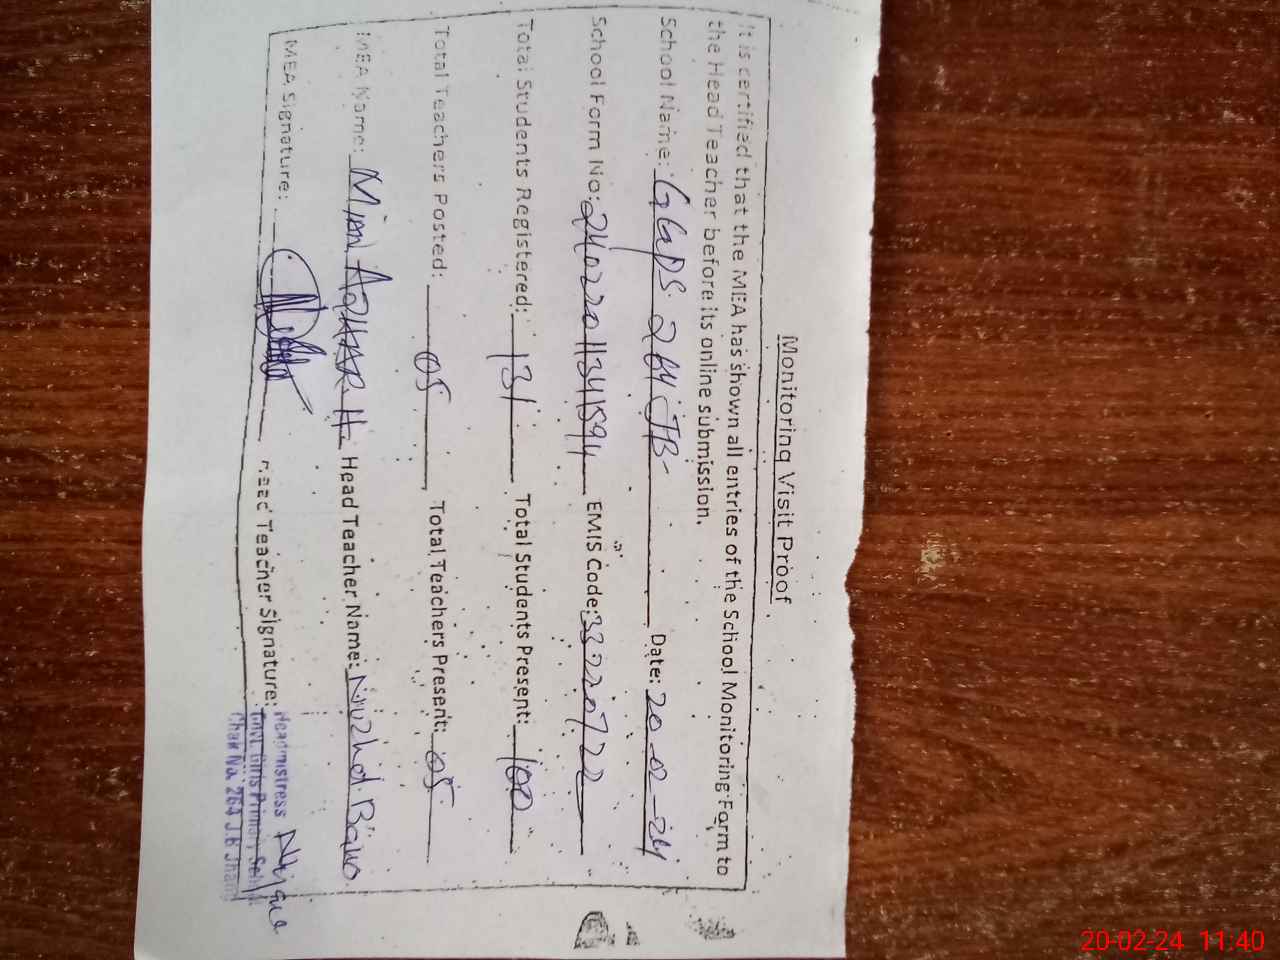 Monitoring Visit Proof
It is certified that the MEA has shown all entries of the School Monitoring Form to
the Head Teacher before its online submission.
School Name: GGPS 264 JB- Date: 20-02-24
School Form No: 24022011341594 EMIS Code: 33220722
Total Students Registered: 131 Total Students Present: 100
Total Teachers Posted: 05 Total Teachers Present: 05
MEA Name: Mian AZHAR H- Head Teacher Name: Nuzhat Bano
MEA Signature: Head Teacher Signature:
Headmistress
Govt. Girls Primary School
Chak No. 264 J.B Jhang
20-02-24 11:40